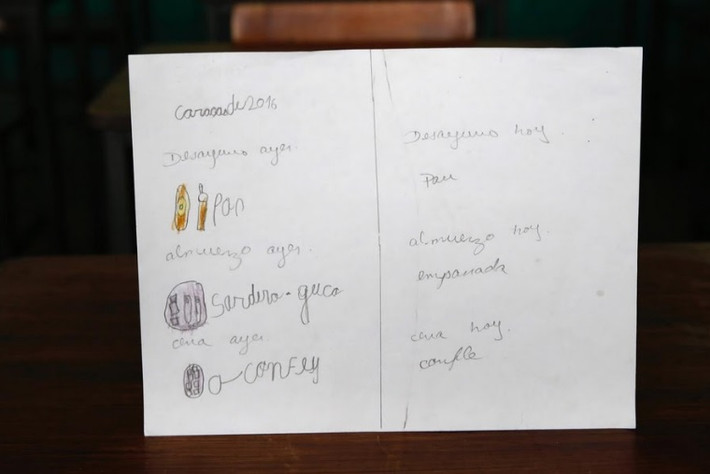 Caracas de 2016
Desayuno ayer.
Pan
almuerzo ayer.
Sardina - yuca
cena ayer.
CONFLY
Desayuno hoy.
Pan
almuerzo hoy.
empanada
cena hoy.
confle